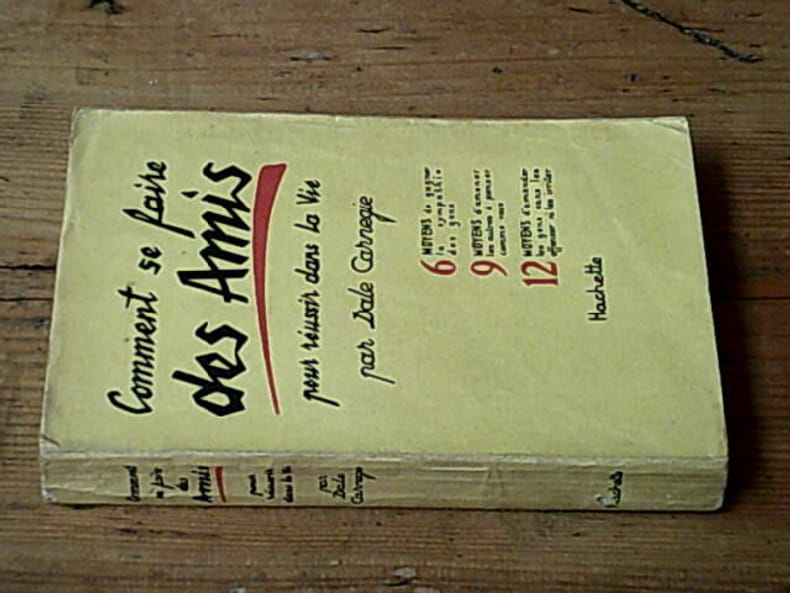 Comment se faire
des Amis
pour réussir dans la Vie
par Dale Carnegie
6 MOYENS de gagner
la sympathie
des gens
9 MOYENS d'amener
les autres à penser
comme vous
12 MOYENS d'amender
les gens sans les
offenser ni les irriter
Hachette
Comment
se faire
des
Amis
pour
réussir
dans la Vie
par
Dale
Carnegie
Hachette